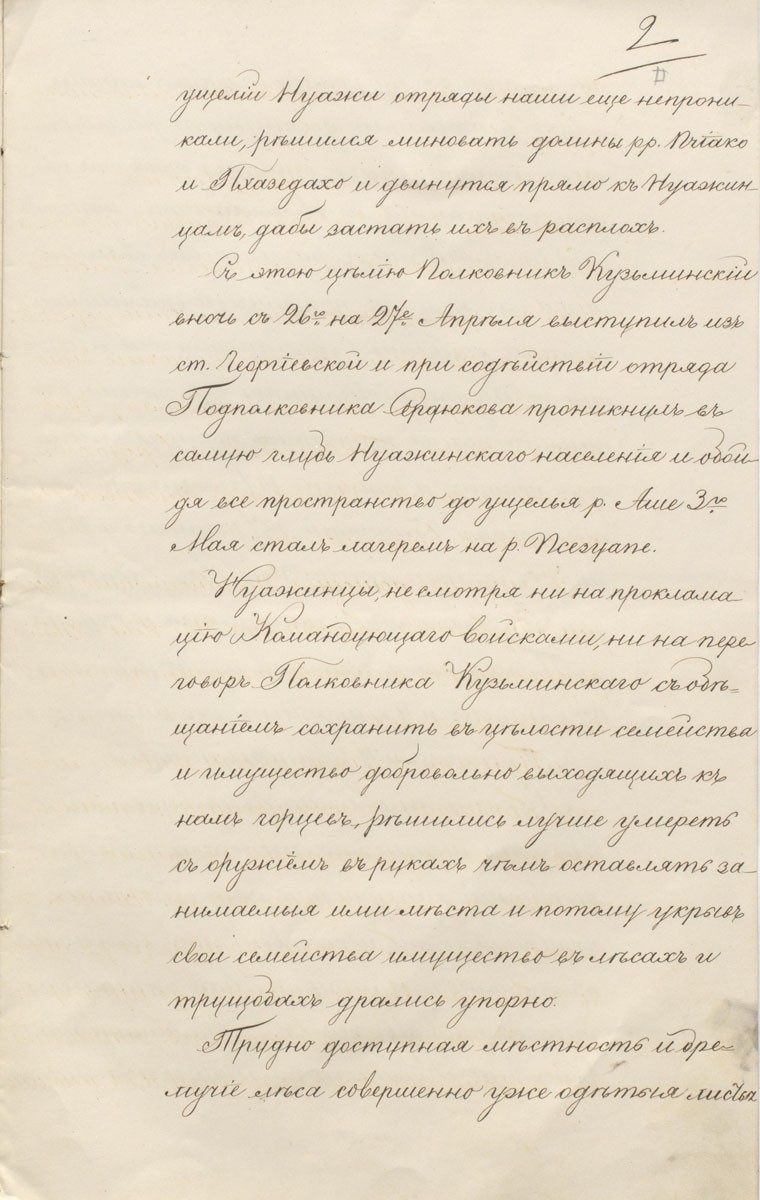 2
ущелiи Нуажи отряды наши еще непрони-
кали, рѣшился миновать долины рр. Пчiако
и Пхазедахо и двинутся прямо къ Нуажин-
цамъ, дабы застать ихъ въ расплохъ.
Съ этою цѣлiю Полковникъ Кузьминскiй
вночь съ 26го на 27е Апрѣля выступилъ изъ
ст. Георгiевской и при содѣйствiи отряда
Подполковника Ердюкова проникнулъ въ
самую глубь Нуажинскаго населенiя и обой-
дя все пространство до ущелья р. Аше 3го
Мая сталъ лагеремъ на р. Псезуапе.
Нуажинцы, не смотря ни на проклама
цiю Командующаго войсками, ни на пере
говоръ Полковника Кузьминскаго съ обѣ-
щанiемъ сохранить въ цѣлости семейства
и имущество добровольно выходящихъ къ
намъ горцевъ, рѣшились лучше умереть
съ оружiемъ въ рукахъ чѣмъ оставлять за-
нимаемыя ими мѣста и потому укрывъ
свои семейства имущество въ лѣсахъ и
трущобахъ дрались упорно.
Трудно доступная мѣстность и дре-
мучiе лѣса совершенно уже одѣтыя листья